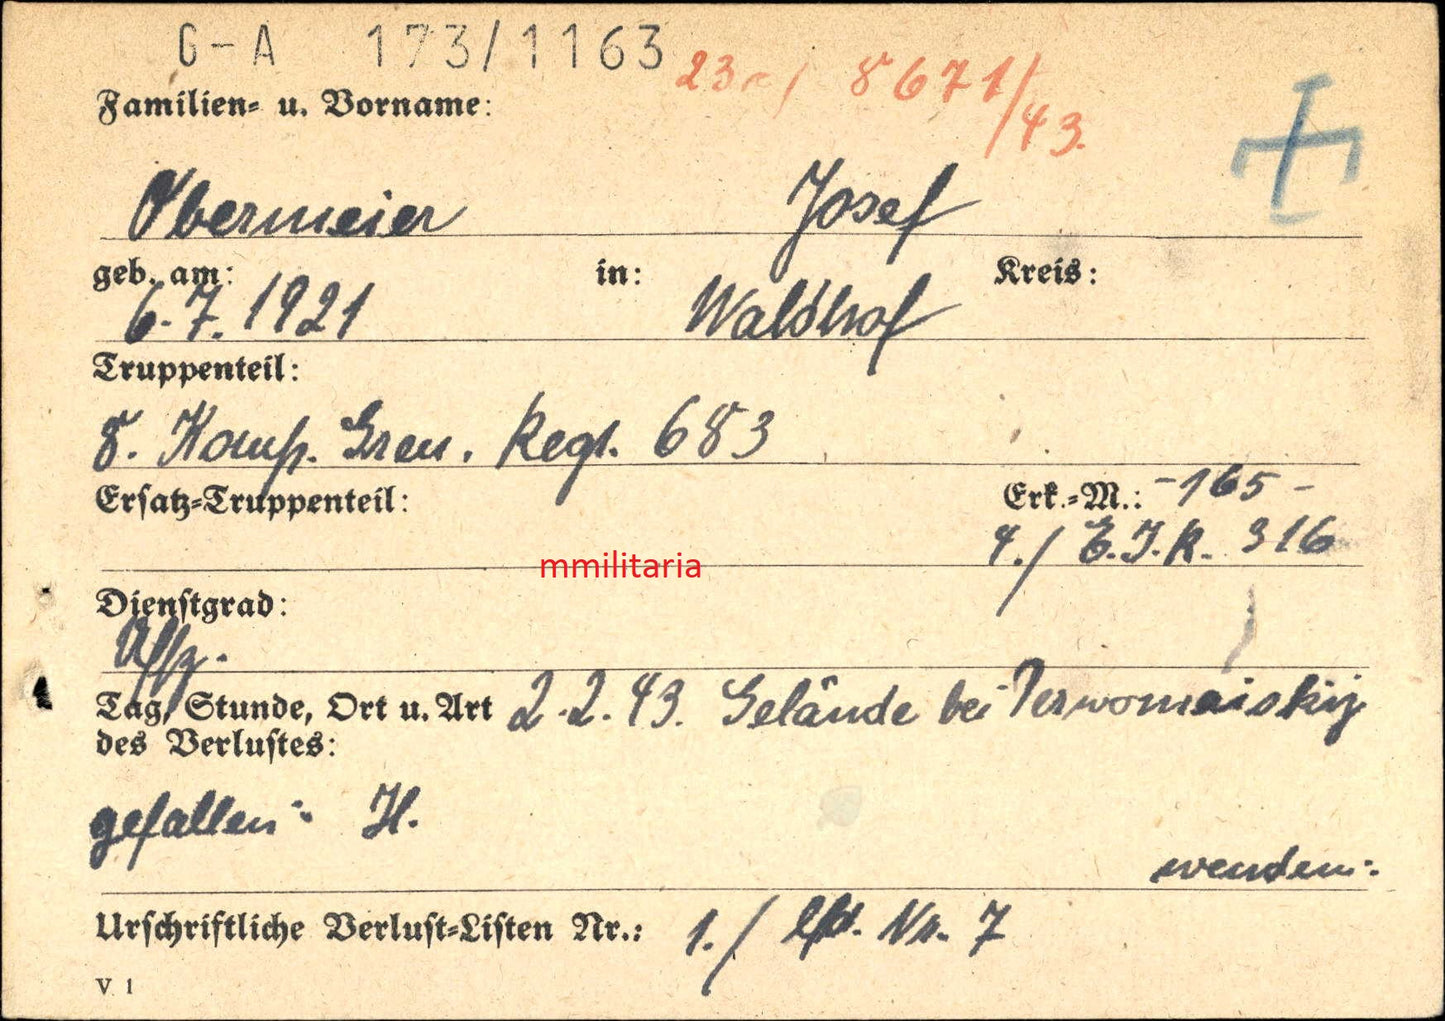 G-A 173/1163
23 / 8671/43.
Familien- u. Vorname:
Obermeier Josef
geb. am: in: Kreis:
6.7.1921 Waldhof
Truppenteil:
8. Komp. Gren. Regt. 683
Ersatz-Truppenteil: Erk.-M.: -165-
4./E.J.R. 316
mmilitaria
Dienstgrad:
Uffz.
Tag, Stunde, Ort u. Art 2.2.43. Gelände bei Perwomaiskij
des Verlustes:
gefallen: H.
wenden:
Urschriftliche Verlust-Listen Nr.: 1./ lfd. Nr. 7
V. 1